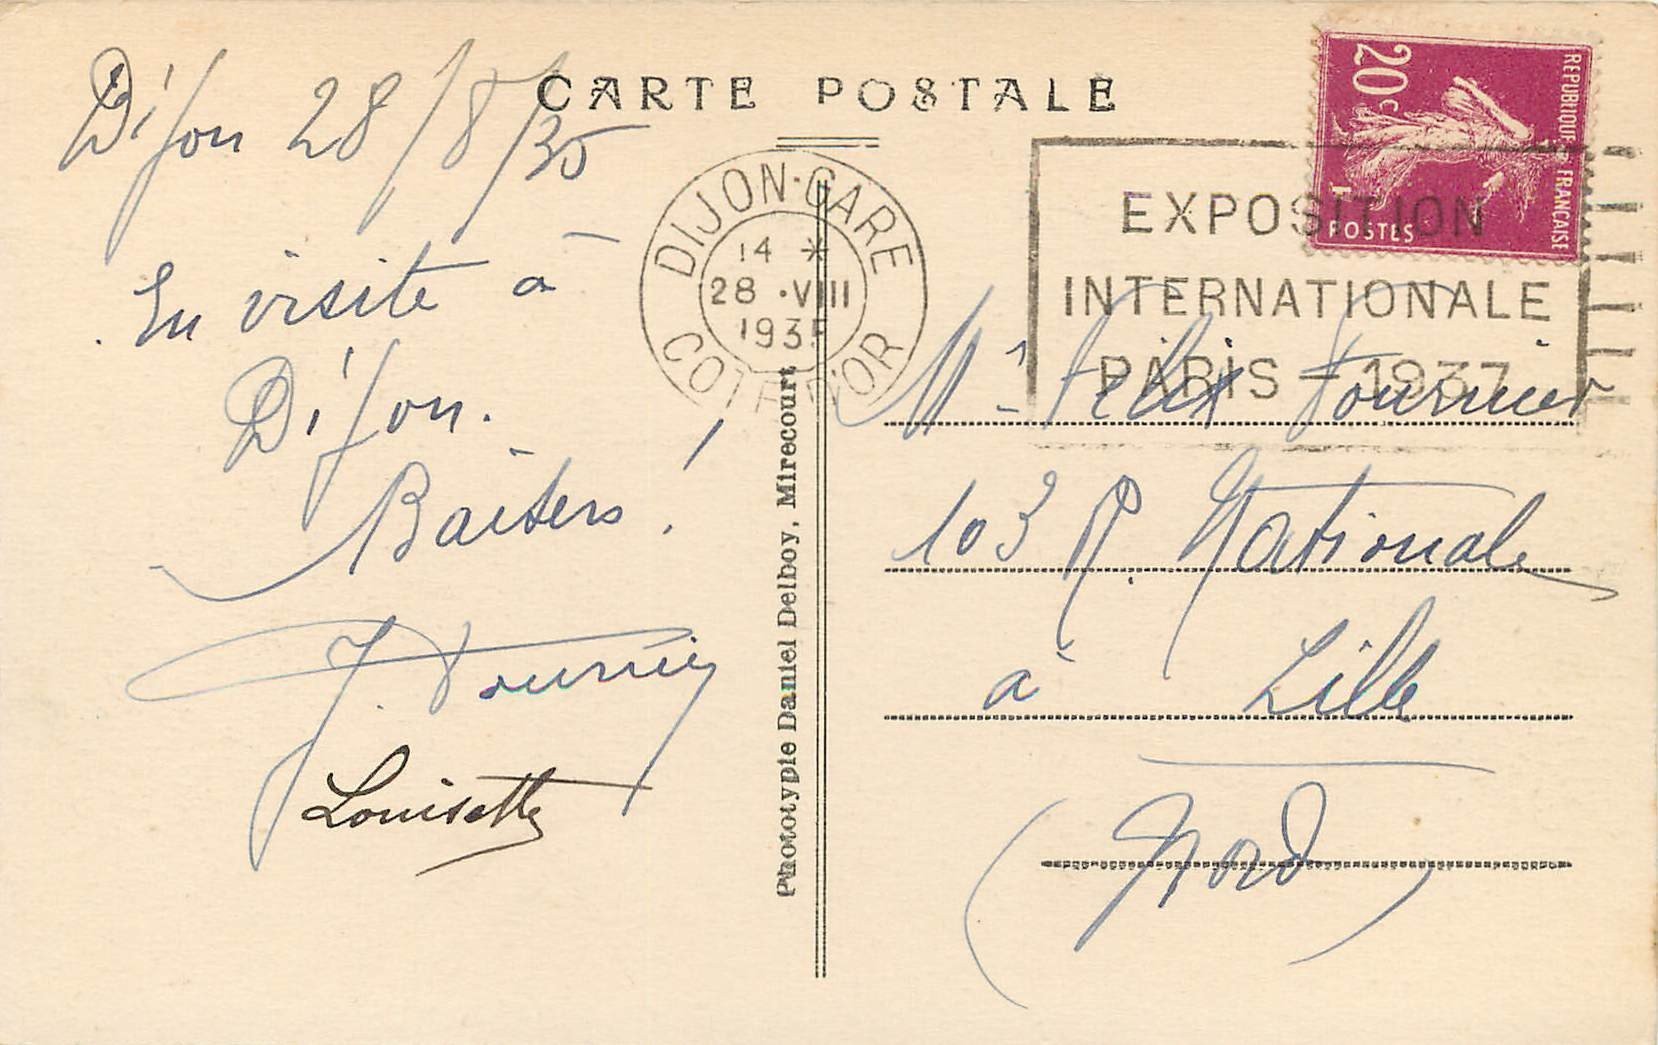 CARTE POSTALE
Dijon 28/8/35
En visite à
Dijon.
Baisers !
J. Fournier
Louisette
Phototypie Daniel Delboy, Mirecourt
DIJON-GARE
14 *
28 ·VIII
1935
COTE D'OR
EXPOSITION
INTERNATIONALE
PARIS - 1937
20c
REPUBLIQUE FRANÇAISE
POSTES
Mr Felix Fournier
103 R. Nationale
à Lille
(Nord)